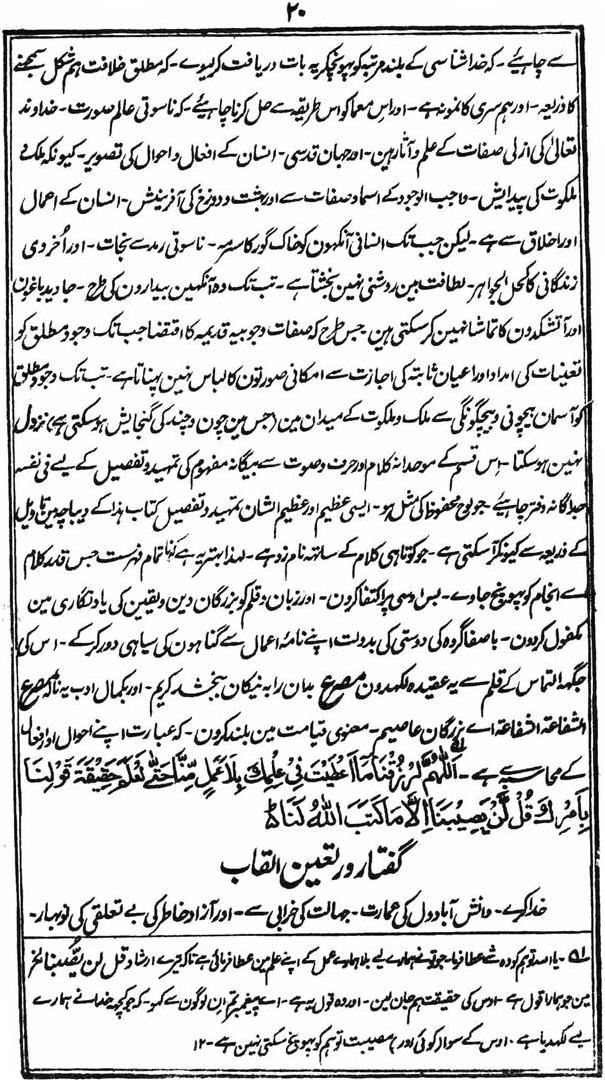 ۲۰
سے چاہیئے۔ کہ خدا شناسی کے بلند مرتبہ کو پہونچکر یہ بات دریافت کر لیوے۔ کہ مطلق خلافت ہم شکل سمجھنے
کا ذریعہ۔ اور ہم سری کا نمونہ ہے۔ اور اس معما کو اس طریقہ سے حل کرنا چاہیئے۔ کہ ناسوتی عالم صورت۔ خداوند
تعالیٰ کی ازلی صفات کے علم و آثار ہین۔ اور جہان قدسی۔ انسان کے افعال و احوال کی تصویر۔ کیونکہ ملک و
ملکوت کی پیدایش۔ واجب الوجود کے اسما و صفات سے اور بہشت و دوزخ کی آفرینش۔ انسان کے اعمال
اور اخلاق سے ہے۔ لیکن جب تک انسانی آنکھون کو خاک گور کا سرمہ۔ ناسوتی رمد سے نجات۔ اور اُخروی
زندگانی کا کحل الجواہر۔ لطافت بین روشنی نہین بخشتا ہے۔ تب تک وہ آنکھین بیدارون کی طرح۔ جاوید باغون
اور آتشکدون کا تماشا نہین کر سکتی ہین۔ جس طرح کہ صفات وجوبیہ قدیمہ کا اقتضا جب تک وجود مطلق کو
تعینات کی امداد اور اعیان ثابتہ کی اجازت سے امکانی صورتون کا لباس نہین پہناتا ہے۔ تب تک وجود مطلق
کو آسمان بیچونی و بیچگونگی سے ملک و ملکوت کے میدان مین (جس مین چون و چند کی گنجایش ہو سکتی ہے) نزول
نہین ہو سکتا۔ اس قسم کے موحدانہ کلام اور حرف و صوت سے بیگانہ مفہوم کی تمہید و تفصیل کے لیے فی نفسہ
جداگانہ دفتر چاہیئے۔ جو لوح محفوظ کی مثل ہو۔ ایسی عظیم اور عظیم الشان تمہید و تفصیل کتاب ہذا کے دیباچہ مین تاویل
کے ذریعہ سے کیونکر آ سکتی ہے۔ جو کوتاہی کلام کے ساتھ نامزد ہے۔ لہذا بہتر یہ ہے کہ ناتمام فہرست جس قدر کلام
سے انجام کو پہونچ جاوے۔ بس اوسی پر اکتفا کرون۔ اور زبان و قلم کو بزرگان دین و یقین کی یادنگاری مین
مکفول کر دون۔ با صفا گروہ کی دوستی کی بدولت اپنے نامۂ اعمال سے گناہون کی سیاہی دور کر کے۔ اس کی
جگہ التماس کے قلم سے یہ عقیدہ لکھدون مصرع بدان را بہ نیکان ببخشد کریم۔ اور بکمال ادب یہ نالہ مصرع
الشفاعۃ الشفاعۃ اے بزرگان عاصیم۔ معنوی قیامت مین بلند کرون۔ کہ عبارت اپنے احوال اور افعال
کے محاسبہ سے ہے۔ اَللّٰھُمَّ ارْزُقْنَا مَا اَعْطَیْتَ فِیْ عِلْمِكَ بِلَا عَمَلٍ مِّنَّا حَتّٰی نَعْلَمَ حَقِیْقَةَ قَوْلِنَا
بِاَمْرِكَ قُلْ لَّنْ یُّصِیْبَنَا اِلَّا مَا كَتَبَ اللّٰهُ لَنَا
گفتار در تعین القاب
خدا کرے۔ دانش آباد دل کی عمارت۔ جہالت کی خرابی سے۔ اور آزاد خاطر کی بے تعلقی کی نوبہار۔
۵۱۔ یا اللہ تو ہم کو وہ شے عطا فرما۔ جو تو نے ہمارے لیے بلا ہمارے عمل کے اپنے علم مین عطا فرمائی ہے تاکہ تیرے ارشاد قل لن یصیبنا الخ
مین جو ہمارا قول ہے۔ اوس کی حقیقت ہم جان لین۔ اور وہ قول یہ ہے۔ اے پیغمبر تم ان لوگون سے کہو۔ کہ جو کچھ خدا نے ہمارے
لیے لکھدیا ہے۔ اوس کے سوا (کوئی اور) مصیبت تو ہم کو پہونچ سکتی نہین ہے۔ ۱۲